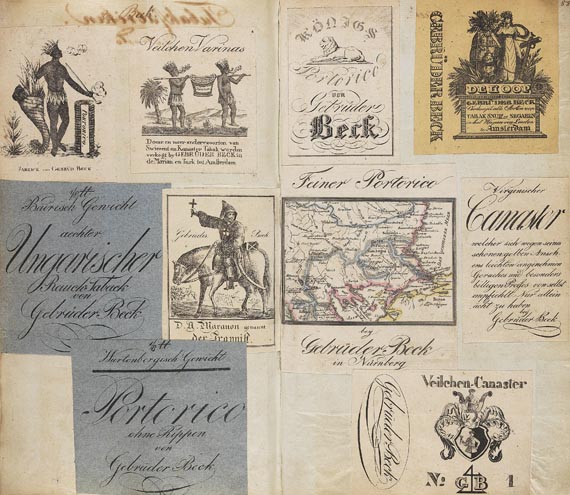 FABRICK von GEBRÜD. BECK
Veilchen Varinas
verkogt by GEBRÜDER BECK in
de Morian en Turk tot Amsterdam
KÖNIGS
Portorico
von
Gebrüder
Beck
GEBRÜDER BECK
DE HOOP
GEBRÜDER BECK
TABAK SNUIF en SEGAREN
in Amsterdam
Bäÿrisch Gewicht
aechter
Ungarischer
Rauch Taback
von
Gebrüder Beck
Gebrüder Beck
D. A. Maranon genannt
der Trapist
Feiner Portorico
by
Gebrüder Beck
in Nürnberg
Virginischer
Canaster
welcher sich wegen seiner
schönen gelben Ansich
ten leichten angenehmen
Geruches und besonders
billigen Preises von selbst
empfiehlt Nur allein
ächt zu haben
bey
Gebrüder Beck
Würtenbergisch Gewicht
Portorico
ohne Rippen
von
Gebrüder Beck
Veilchen-Canaster
Gebrüder Beck
No. GB 1